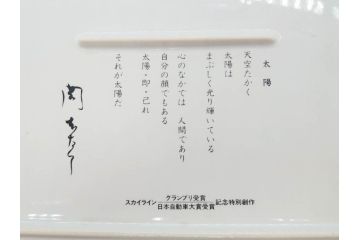 太陽
天空たかく
太陽は
まぶしく光り輝いている
心のなかでは 人間であり
自分の顔でもある
太陽・即・己れ
それが太陽だ
スカイライン グランプリ受賞 日本自動車大賞受賞 記念特別創作